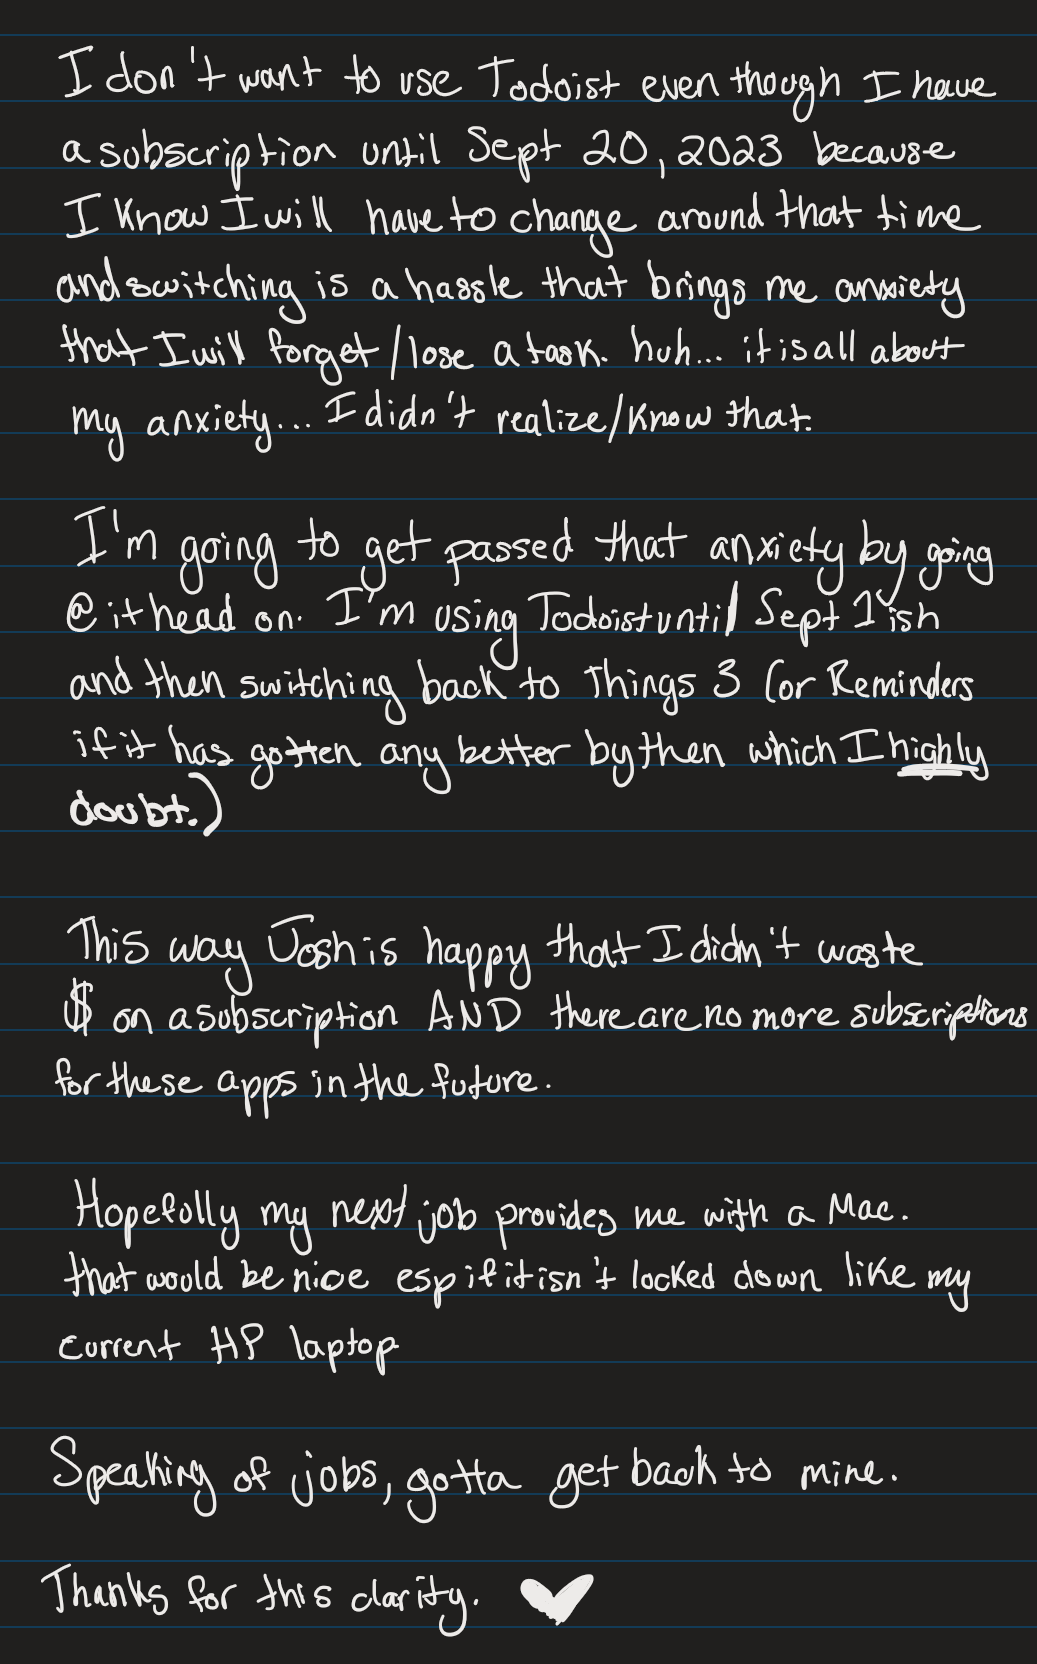 I don't want to use Todoist even though I have
a subscription until Sept 20, 2023 because
I know I will have to change around that time
and switching is a hassle that brings me anxiety
that I will forget/lose a task. huh... it is all about
my anxiety... I didn't realize/know that.
I'm going to get passed that anxiety by going
@ it head on. I'm using Todoist until Sept 1 ish
and then switching back to Things 3 (or Reminders
if it has gotten any better by then which I highly
doubt.)
This way Josh is happy that I didn't waste
$ on a subscription AND there are no more subscriptions
for these apps in the future.
Hopefully my next job provides me with a Mac.
that would be nice esp if it isn't locked down like my
current HP laptop
Speaking of jobs, gotta get back to mine.
Thanks for this clarity.